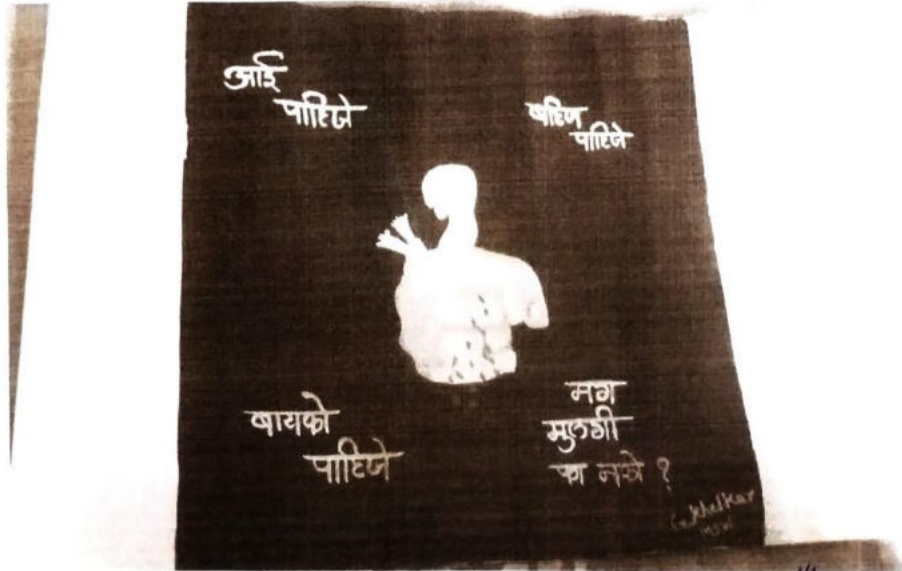 आई
पाहिजे
बहिण
पाहिजे
बायको
पाहिजे
मग
मुलगी
का नको ?